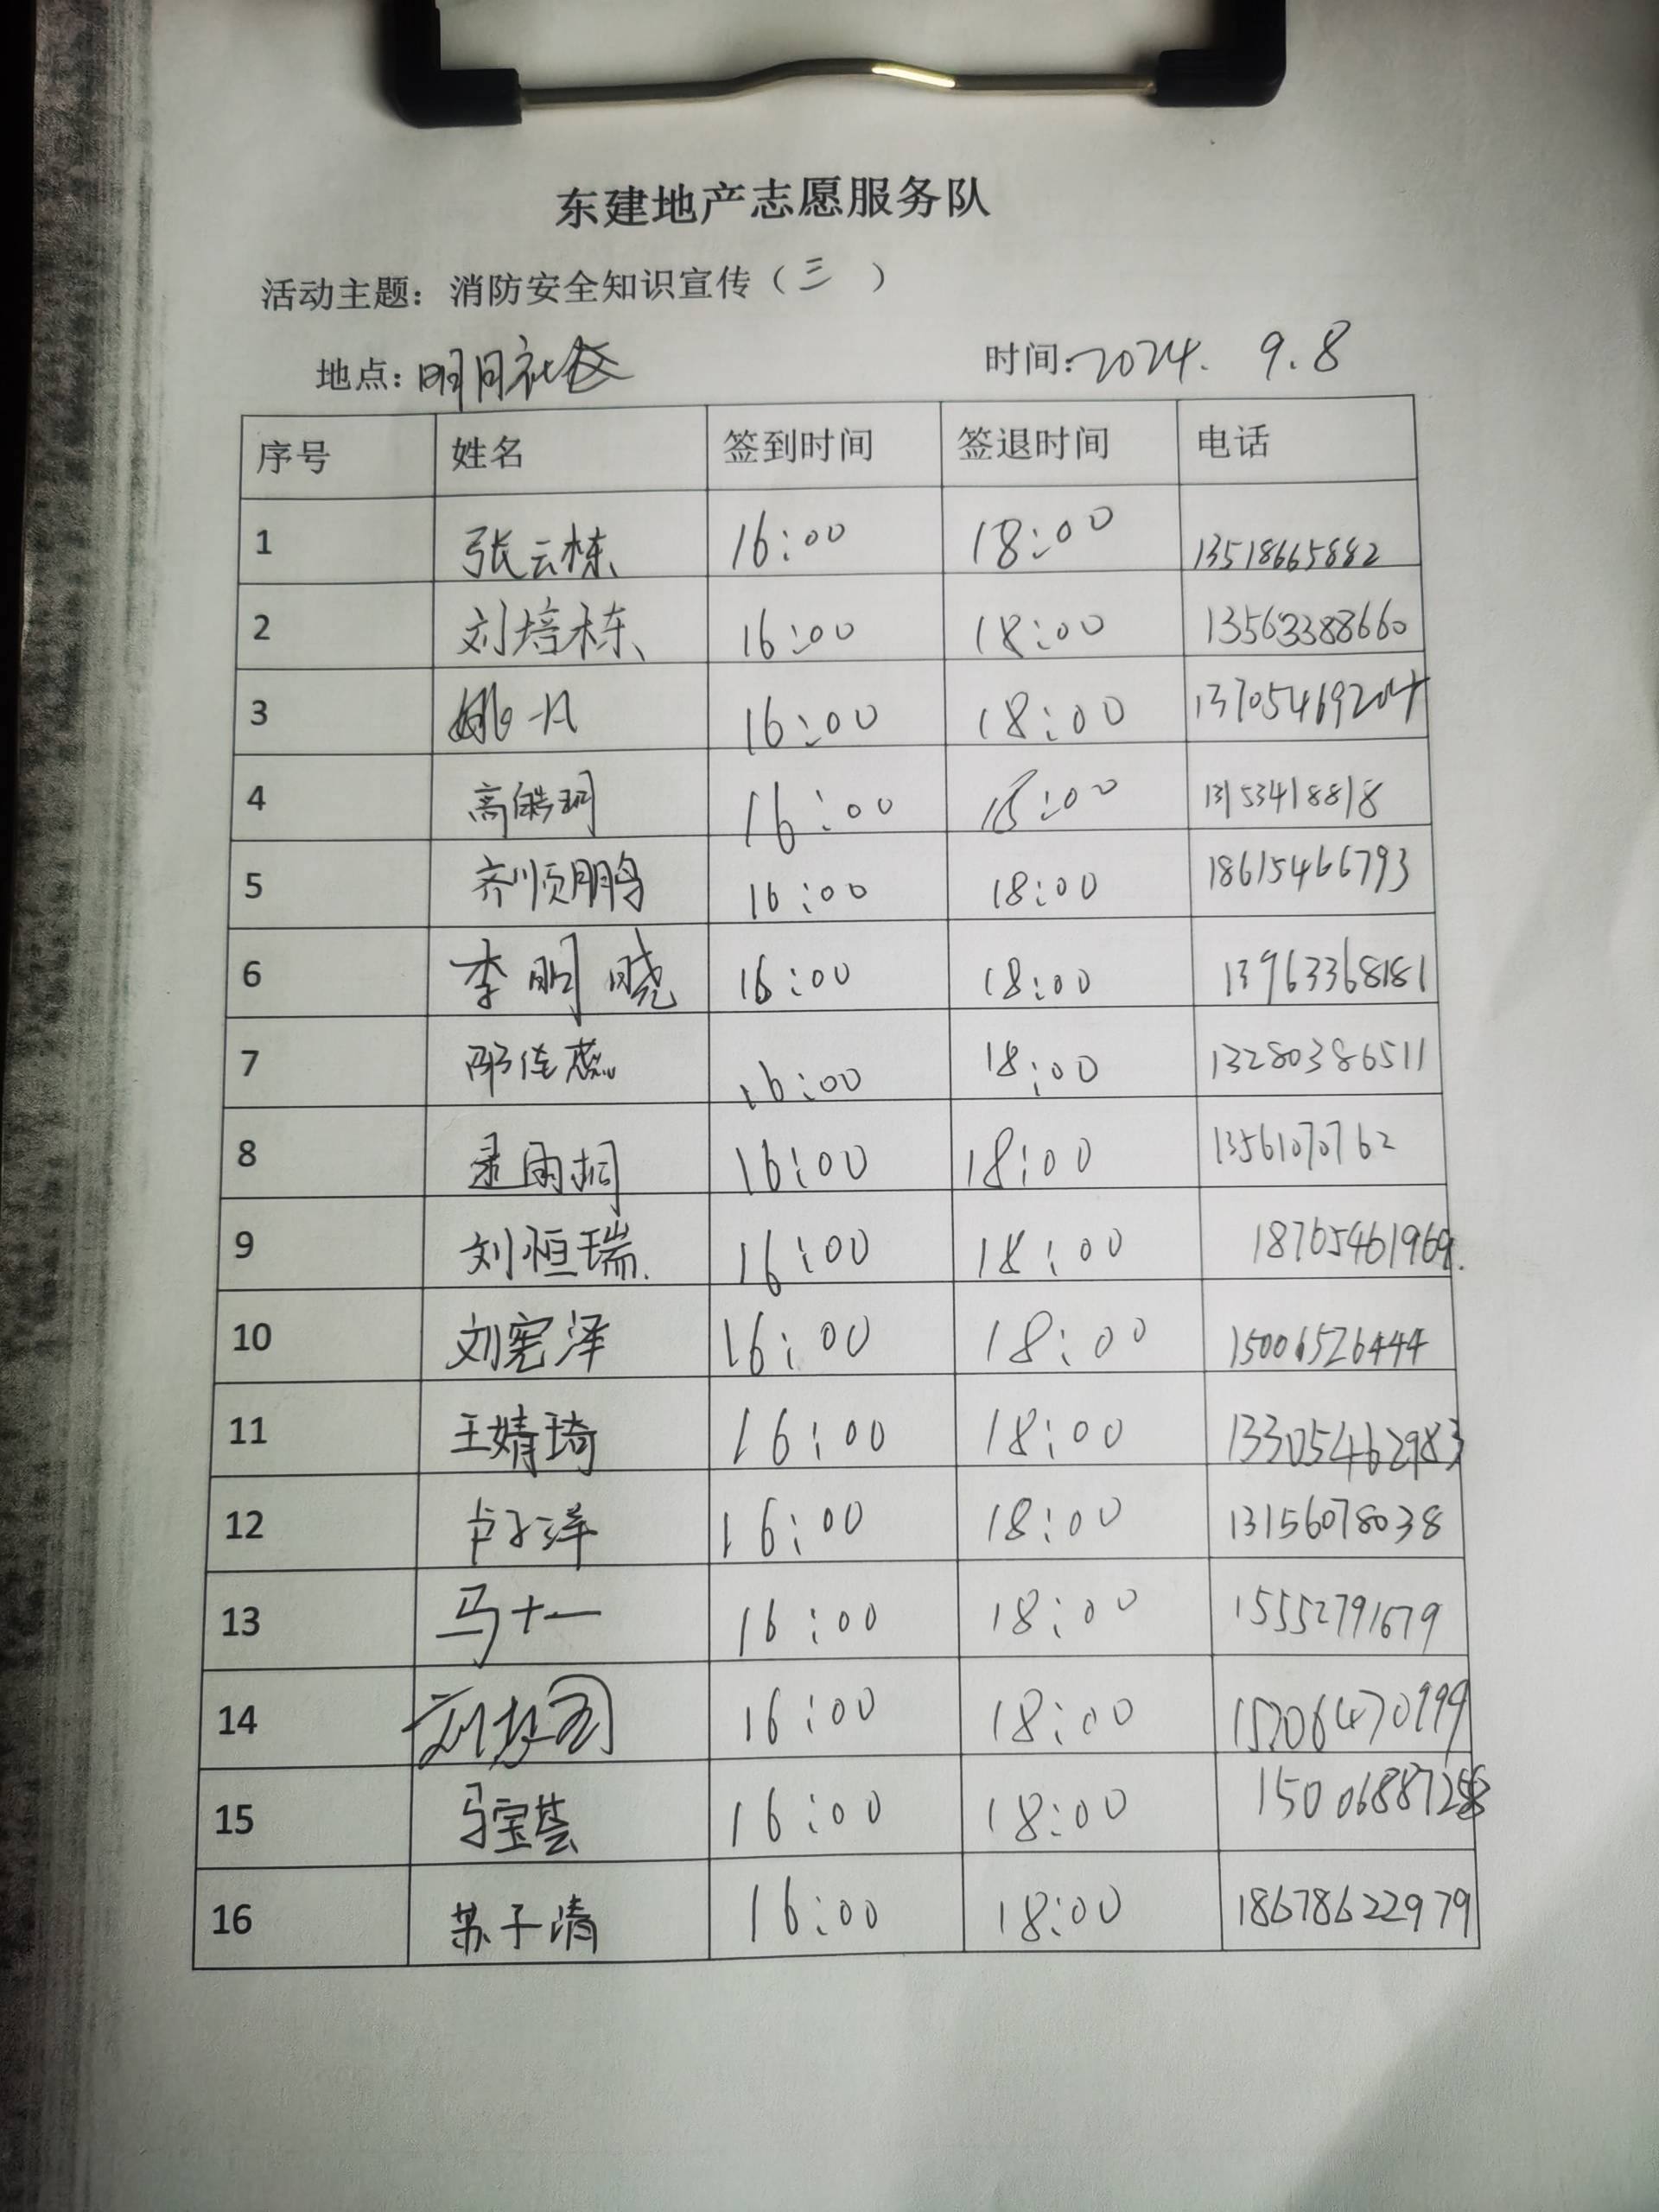 东建地产志愿服务队
活动主题：消防安全知识宣传（三 ）
地点：明月社区 时间：2024. 9.8
序号 姓名 签到时间 签退时间 电话
1 张云栋 16:00 18:00 13518665882
2 刘培栋 16:00 18:00 13563388660
3 姚一凡 16:00 18:00 13705469204
4 高皓玥 16:00 18:00 13153418818
5 齐顺鹏 16:00 18:00 18615466793
6 李明晓 16:00 18:00 13963368181
7 邵佳蕊 16:00 18:00 13280386511
8 雨桐 16:00 18:00 13561070762
9 刘恒瑞. 16:00 18:00 18765461969.
10 刘宪泽 16:00 18:00 15006526444
11 王婧琦 16:00 18:00 13305462983
12 卢子洋 16:00 18:00 13156078038
13 马十一 16:00 18:00 15552791679
14 16:00 18:00
15 马宝芸 16:00 18:00
16 苏子清 16:00 18:00 18678622979